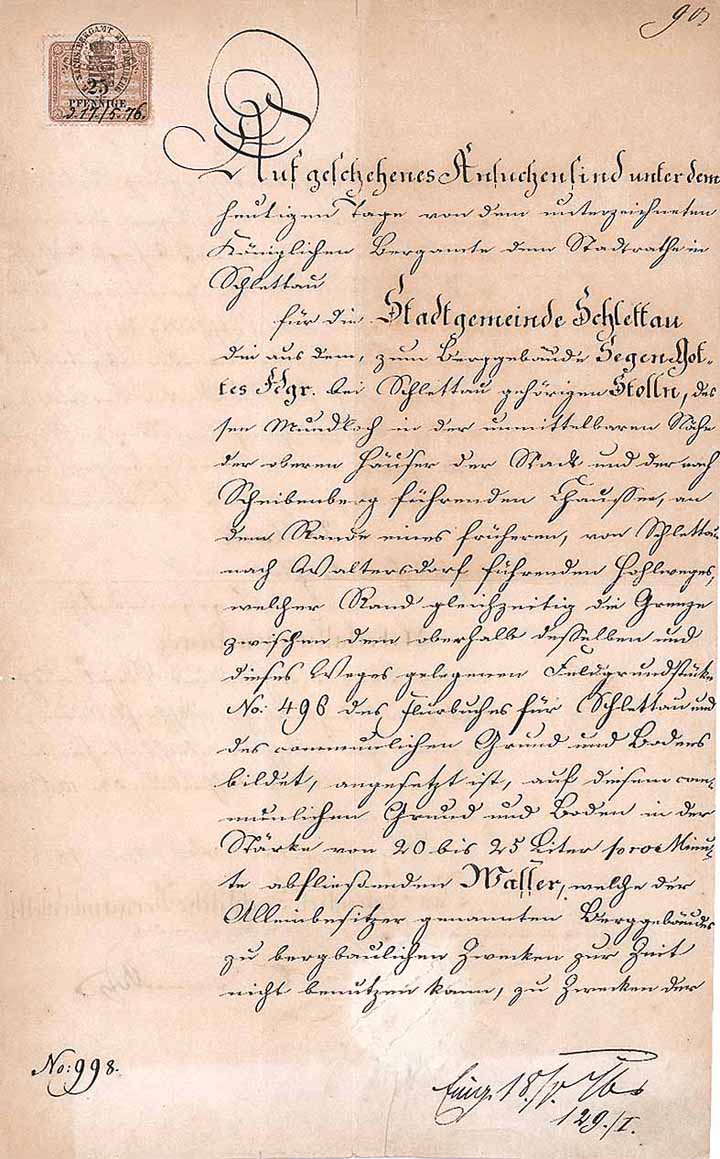 90.
25
PFENNIGE
d. 17/5. 76.
Auf geschehenes Ansuchen sind unter dem
heutigen Tage von dem unterzeichneten
Königlichen Bergamte dem Stadtrathe in
Schlettau
für die Stadtgemeinde Schlettau
die aus dem, zum Berggebäude Segen Got-
tes Fdgr. bei Schlettau gehörigen Stolln, des
sen Mundloch in der unmittelbaren Nähe
der oberen Häuser der Stadt und der nach
Scheibenberg führenden Chaussee, an
dem Rande eines früheren, von Schlettau
nach Waltersdorf führenden Hohlweges,
welcher Rand gleichzeitig die Grenze
zwischen dem oberhalb desselben und
dieses Weges gelegenen Feldgrundstücke
No: 496 des Flurbuches für Schlettau und
des communlichen Grund und Bodens
bildet, angesetzt ist, auf diesem com-
munlichen Grund und Boden in der
Stärke von 20 bis 25 Liter pro Minu-
te abfließenden Wasser, welche der
Alleinbesitzer genannten Berggebäudes
zu bergbaulichen Zwecken zur Zeit
nicht benutzen kann, zu Zwecken der
No: 998.
Eing. 18./V. 76
129./I.